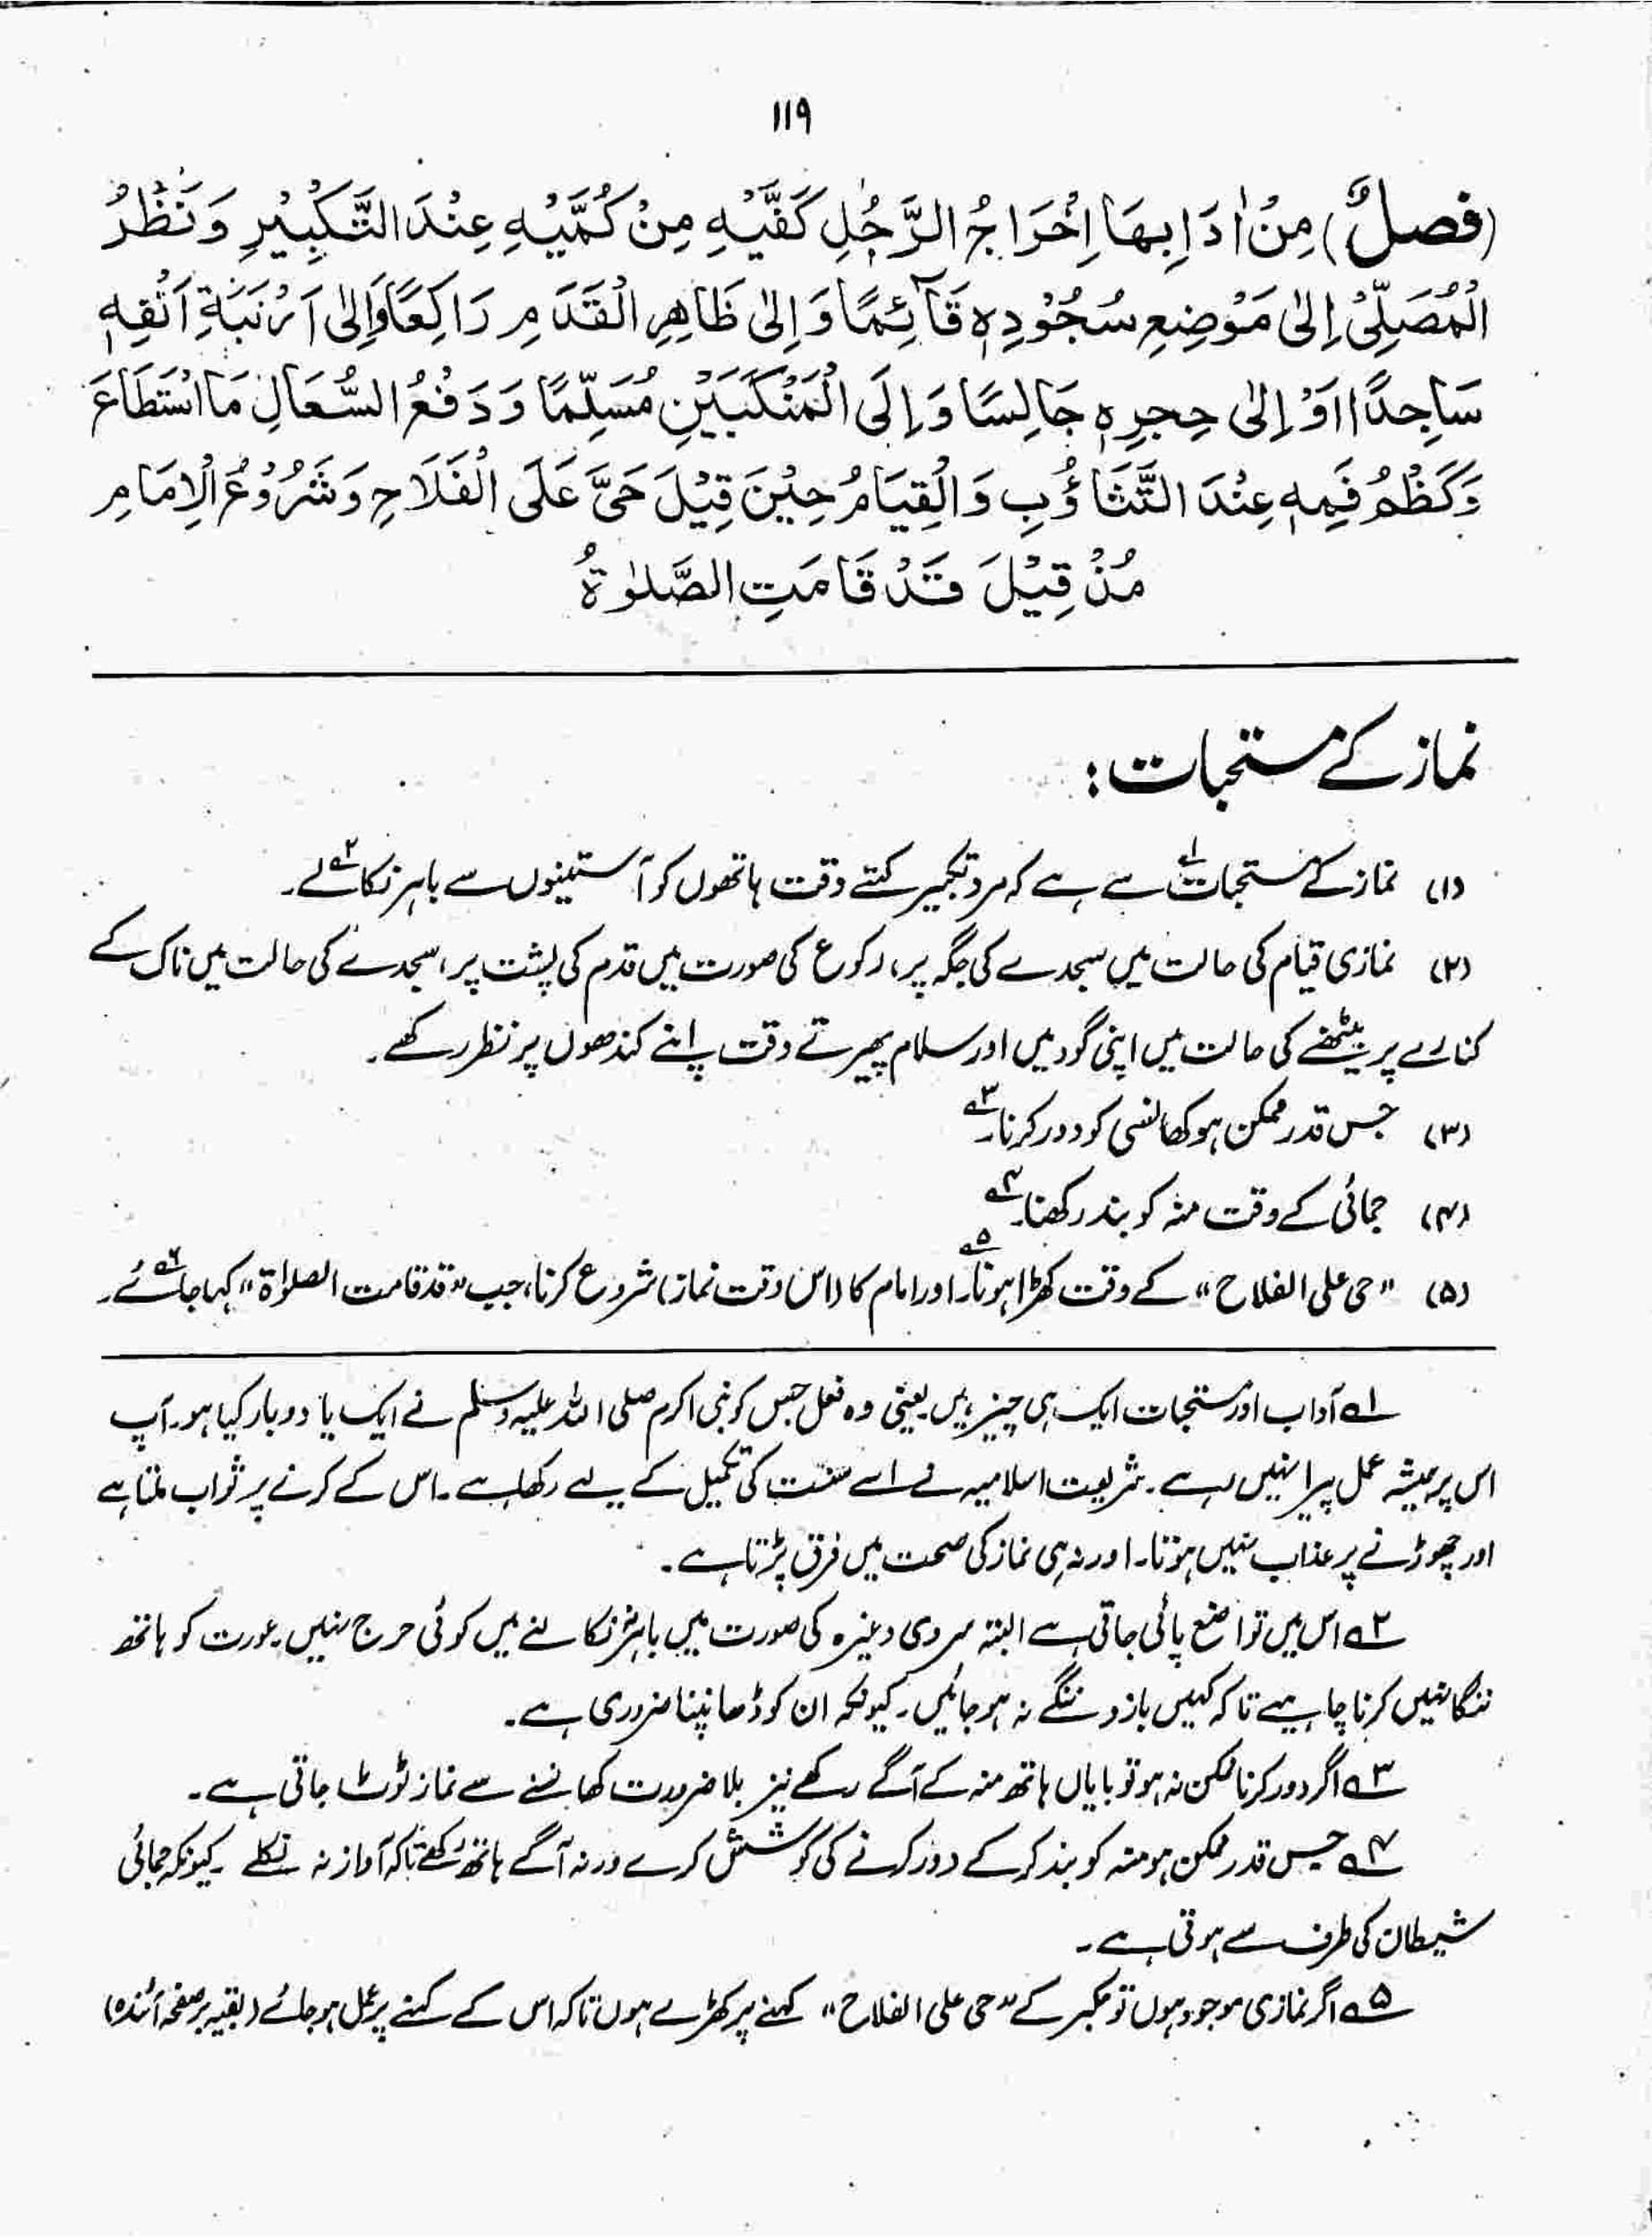 ۱۱۹
(فصلٌ) مِنْ اٰدَابِهَا اِخْرَاجُ الرَّجُلِ كَفَّيْهِ مِنْ كُمَّيْهِ عِنْدَ التَّكْبِيْرِ وَنَظْرُ
الْمُصَلِّيْ اِلٰى مَوْضِعِ سُجُوْدِهٖ قَآئِمًا وَاِلٰى ظَاهِرِ الْقَدَمِ رَاكِعًا وَاِلٰى اَرْنَبَةِ اَنْفِهٖ
سَاجِدًا اَوْ اِلٰى حِجرِهٖ جَالِسًا وَاِلَى الْمَنْكَبَيْنِ مُسَلِّمًا وَدَفْعُ السُّعَالِ مَا اسْتَطَاعَ
وَكَظْمُ فَمِهٖ عِنْدَ التَّثَاؤُبِ وَالْقِيَامُ حِيْنَ قِيْلَ حَيَّ عَلَى الْفَلَاحِ وَشَرُوْعُ الْاِمَامِ
مُنْ قِيْلَ قَدْ قَامَتِ الصَّلٰوةُ
نماز کے مستحبات :
(۱) نماز کے مستحبات۱ے سے ہے کہ مرد تکبیر کہتے وقت ہاتھوں کو آستینوں سے باہر نکالے۲ے۔
(۲) نمازی قیام کی حالت میں سجدے کی جگہ پر، رکوع کی صورت میں قدم کی پشت پر، سجدے کی حالت میں ناک کے
کنارے پر بیٹھنے کی حالت میں اپنی گود میں اور سلام پھیرتے وقت اپنے کندھوں پر نظر رکھے۔
(۳) جس قدر ممکن ہو کھانسی کو دور کرنا۔۳ے
(۴) جمائی کے وقت منہ کو بند رکھنا۔۴ے
(۵) "حی علی الفلاح" کے وقت کھڑا ہونا۵ے۔ اور امام کا (اس وقت نماز) شروع کرنا، جب "قد قامت الصلوٰۃ" کہا جائے۶ے۔
۱ے آداب اور مستحبات ایک ہی چیز ہیں یعنی وہ فعل جس کو نبی اکرم صلی اللہ علیہ وسلم نے ایک یا دو بار کیا ہو۔ آپ
اس پر ہمیشہ عمل پیرا نہیں رہے۔ شریعت اسلامیہ نے اسے سنت کی تکمیل کے لیے رکھا ہے۔ اس کے کرنے پر ثواب ملتا ہے
اور چھوڑنے پر عذاب نہیں ہوتا۔ اور نہ ہی نماز کی صحت میں فرق پڑتا ہے۔
۲ے اس میں تواضع پائی جاتی ہے البتہ سردی وغیرہ کی صورت میں باہر نہ نکالنے میں کوئی حرج نہیں۔ عورت کو ہاتھ
ننگا نہیں کرنا چاہیے تا کہ کہیں بازو ننگے نہ ہو جائیں۔ کیونکہ ان کو ڈھانپنا ضروری ہے۔
۳ے اگر دور کرنا ممکن نہ ہو تو بایاں ہاتھ منہ کے آگے رکھے نیز بلا ضرورت کھانسنے سے نماز ٹوٹ جاتی ہے۔
۴ے جس قدر ممکن ہو منہ کو بند کر کے دور کرنے کی کوشش کرے ورنہ آگے ہاتھ رکھے تاکہ آواز نہ نکلے۔ کیونکہ جمائی
شیطان کی طرف سے ہوتی ہے۔
۵ے اگر نمازی موجود ہوں تو مکبر کے "حی علی الفلاح" کہنے پر کھڑے ہوں تا کہ اس کے کہنے پر عمل ہو جائے (بقیہ بر صفحہ آئندہ)